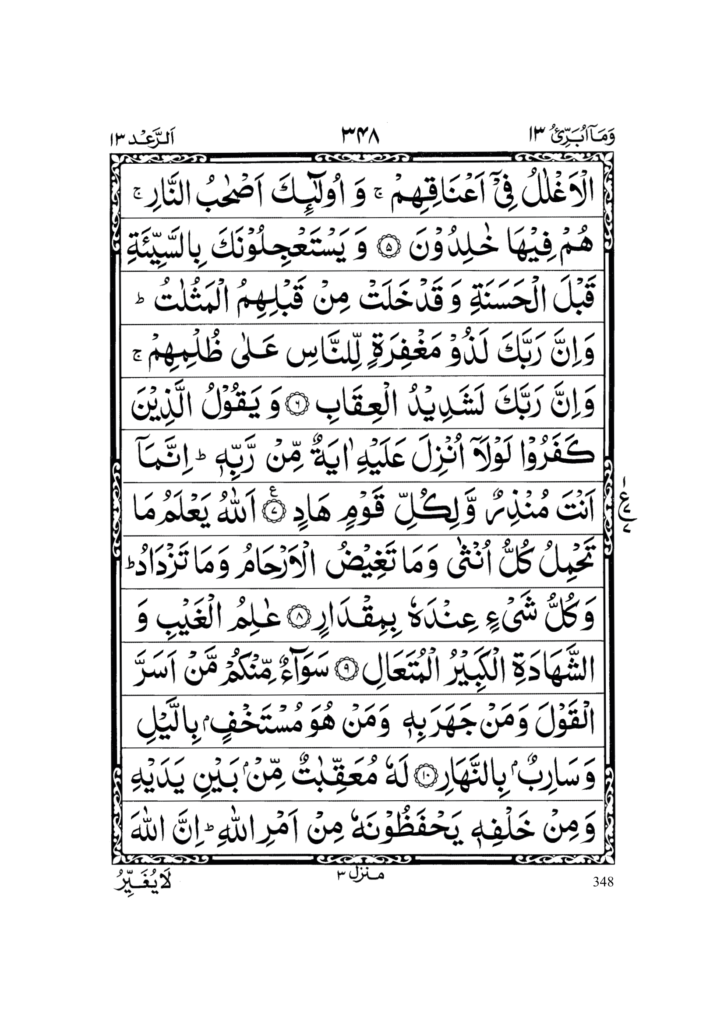 وَمَاۤ اُبَرِّئُ ۱۳ ۳۴۸ اَلرَّعْد ۱۳
الْاَغْلٰلُ فِیْۤ اَعْنَاقِهِمْ ۚ وَ اُولٰٓئِكَ اَصْحٰبُ النَّارِ ۚ
هُمْ فِیْهَا خٰلِدُوْنَ ﴿۵﴾ وَ یَسْتَعْجِلُوْنَكَ بِالسَّیِّئَةِ
قَبْلَ الْحَسَنَةِ وَ قَدْ خَلَتْ مِنْ قَبْلِهِمُ الْمَثُلٰتُ ؕ
وَ اِنَّ رَبَّكَ لَذُوْ مَغْفِرَةٍ لِّلنَّاسِ عَلٰی ظُلْمِهِمْ ۚ
وَ اِنَّ رَبَّكَ لَشَدِیْدُ الْعِقَابِ ﴿۶﴾ وَ یَقُوْلُ الَّذِیْنَ
كَفَرُوْا لَوْلَاۤ اُنْزِلَ عَلَیْهِ اٰیَةٌ مِّنْ رَّبِّهٖ ؕ اِنَّمَاۤ
اَنْتَ مُنْذِرٌ وَّ لِكُلِّ قَوْمٍ هَادٍ ﴿۷﴾ۧ اَللّٰهُ یَعْلَمُ مَا
تَحْمِلُ كُلُّ اُنْثٰی وَ مَا تَغِیْضُ الْاَرْحَامُ وَ مَا تَزْدَادُ ؕ
وَ كُلُّ شَیْءٍ عِنْدَهٗ بِمِقْدَارٍ ﴿۸﴾ عٰلِمُ الْغَیْبِ وَ
الشَّهَادَةِ الْكَبِیْرُ الْمُتَعَالِ ﴿۹﴾ سَوَآءٌ مِّنْكُمْ مَّنْ اَسَرَّ
الْقَوْلَ وَ مَنْ جَهَرَ بِهٖ وَ مَنْ هُوَ مُسْتَخْفٍۭ بِالَّیْلِ
وَ سَارِبٌۢ بِالنَّهَارِ ﴿۱۰﴾ لَهٗ مُعَقِّبٰتٌ مِّنْۢ بَیْنِ یَدَیْهِ
وَ مِنْ خَلْفِهٖ یَحْفَظُوْنَهٗ مِنْ اَمْرِ اللّٰهِ ؕ اِنَّ اللّٰهَ
لَا یُغَیِّرُ
منزل ۳
348